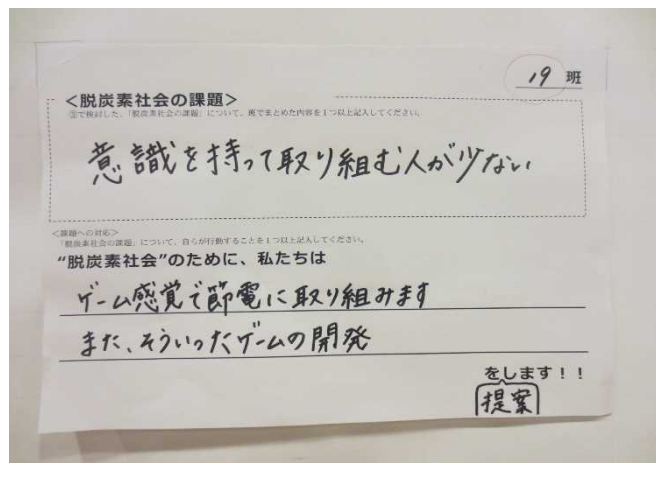 19 班
<脱炭素社会の課題>
②で検討した、「脱炭素社会の課題」について、班でまとめた内容を1つ以上記入してください。
意識を持って取り組む人が少ない
<課題への対応>
「脱炭素社会の課題」について、自らが行動することを1つ以上記入してください。
“脱炭素社会”のために、私たちは
ゲーム感覚で節電に取り組みます
また、そういったゲームの開発
をします！！
提案